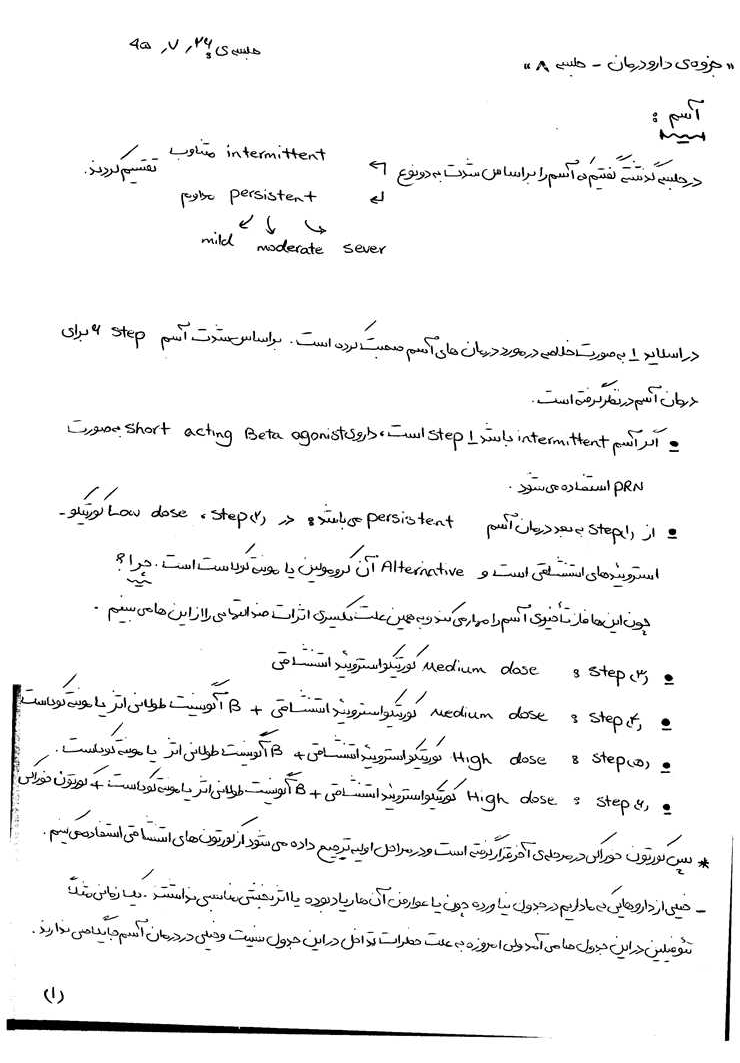 جلسه‌ی ۲۶، ۷، ۹۵
«جزوه‌ی دارودرمان - جلسه ۸»
آسم :
در جلسه گذشته گفتیم که آسم را براساس شدت به دو نوع
intermittent متناوب
persistent مداوم
تقسیم کردند.
mild moderate sever
در اسلاید 1 به صورت خلاصه در مورد درمان های آسم صحبت کرده است. براساس شدت آسم ۶ step برای
درمان آسم در نظر گرفته است.
• اگر آسم intermittent باشد step 1 است، داروی short acting Beta agonist به صورت
PRN استفاده می شود.
• از step(۱) به بعد درمان آسم persistent می باشد و در step(۲)، Low dose کورتیکو-
استروئیدهای استنشاقی است و Alternative آن کرومولین یا مونته لوکاست است. چرا؟
چون این ها فاز تأخیری آسم را مهار می کند و به همین علت یکسری اثرات ضد التهابی را از این ها می بینیم.
• step(۳) : Medium dose کورتیکواستروئید استنشاقی
• step(۴) : Medium dose کورتیکواستروئید استنشاقی + B آگونیست طولانی اثر یا مونته لوکاست
• step(۵) : High dose کورتیکواستروئید استنشاقی + B آگونیست طولانی اثر یا مونته لوکاست.
• step(۶) : High dose کورتیکواستروئید استنشاقی + B آگونیست طولانی اثر یا مونته لوکاست + کورتون خوراکی
* پس کورتون خوراکی در مرحله ی آخر قرار گرفته است و در مراحل اولیه ترجیح داده می شود از کورتون های استنشاقی استفاده می کنیم.
- خیلی از داروهایی که ما داریم در جدول نیاورده چون یا عوارض آن ها زیاد بوده یا اثربخشی مناسبی نداشتند. یک زمانی مثلاً
تئوفیلین در این جدول ها می آمد ولی امروزه به علت خطرات تداخل در این جدول نیست و خیلی در درمان آسم جایگاهی ندارند.
(۱)